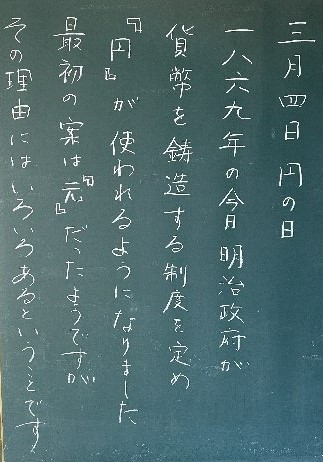 三月四日 円の日
一八六九年の今日明治政府が
貨幣を鋳造する制度を定め
『円』が使われるようになりました
最初の案は『元』だったようですが
その理由にはいろいろあるということです